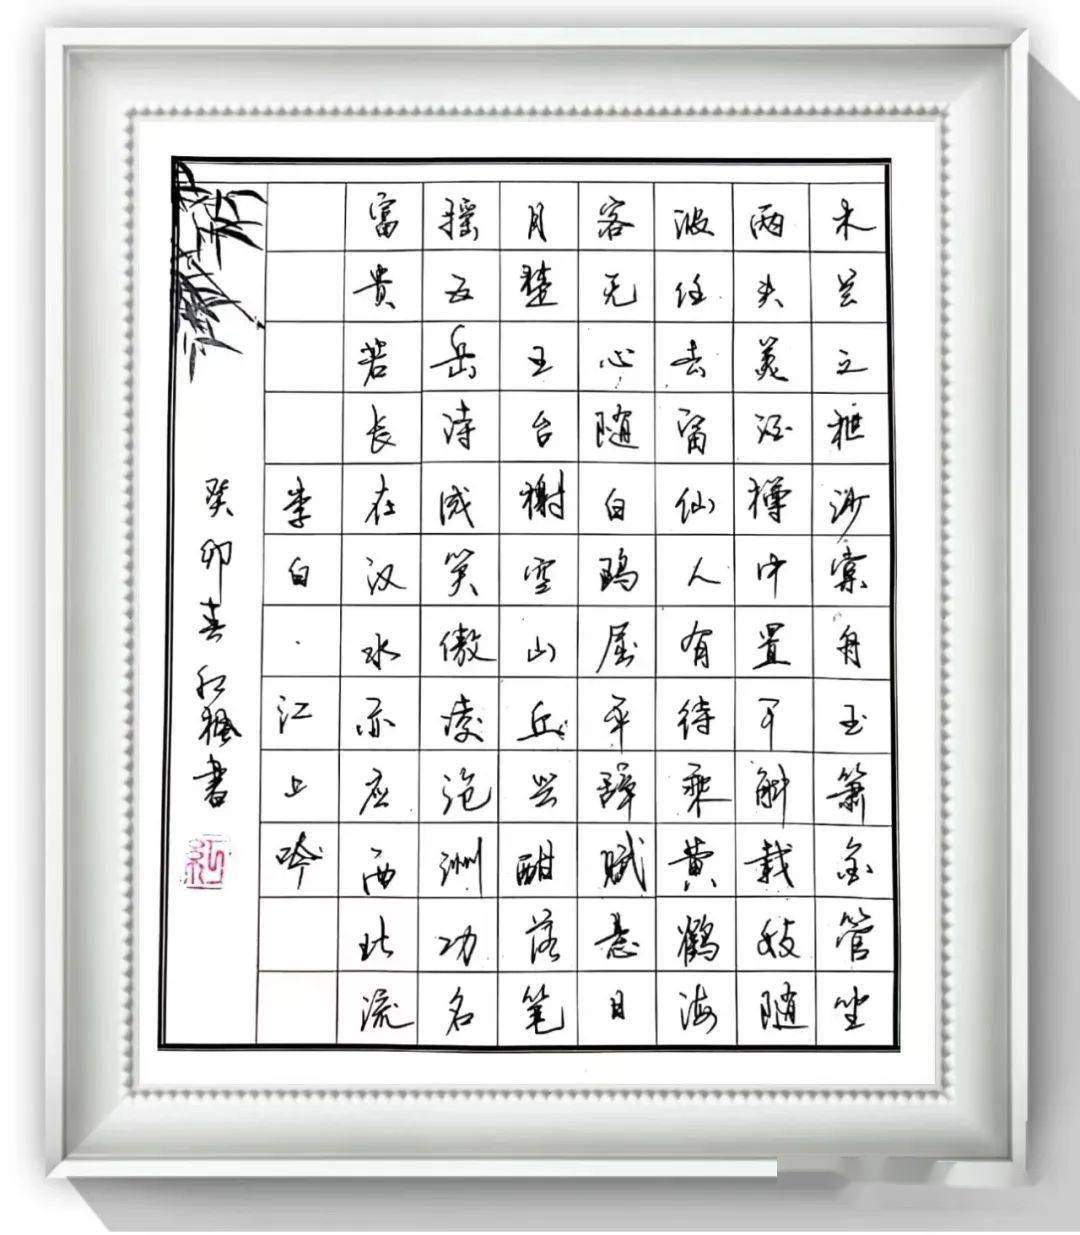 木兰之枻沙棠舟玉箫金管坐
两头美酒樽中置千斛载妓随
波任去留仙人有待乘黄鹤海
客无心随白鸥屈平辞赋悬日
月楚王台榭空山丘兴酣落笔
摇五岳诗成笑傲凌沧洲功名
富贵若长在汉水亦应西北流
李白·江上吟
癸卯春红枫书